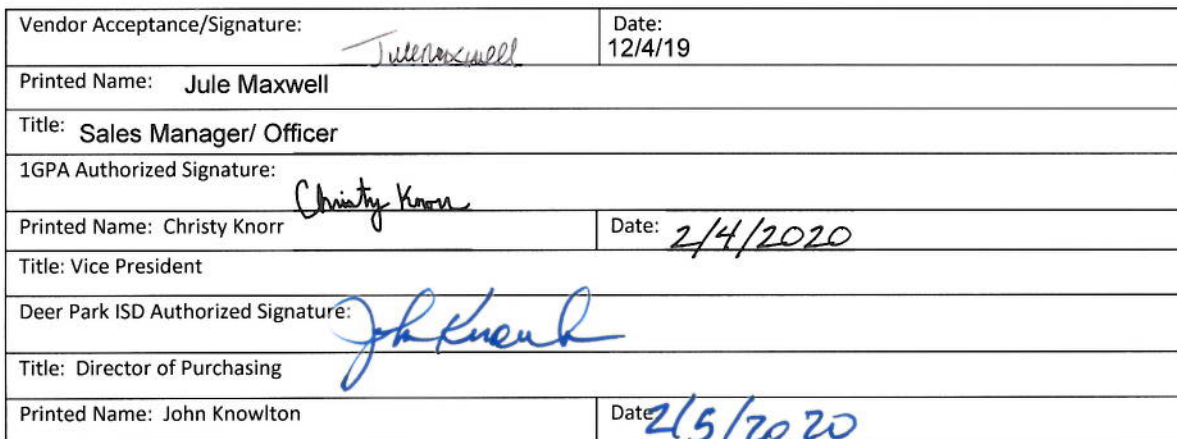 Vendor Acceptance/Signature: Jule Maxwell Date:
12/4/19
Printed Name: Jule Maxwell
Title: Sales Manager/ Officer
1GPA Authorized Signature: Christy Knorr
Printed Name: Christy Knorr Date: 2/4/2020
Title: Vice President
Deer Park ISD Authorized Signature: John
Title: Director of Purchasing
Printed Name: John Knowlton Date 2/5/2020